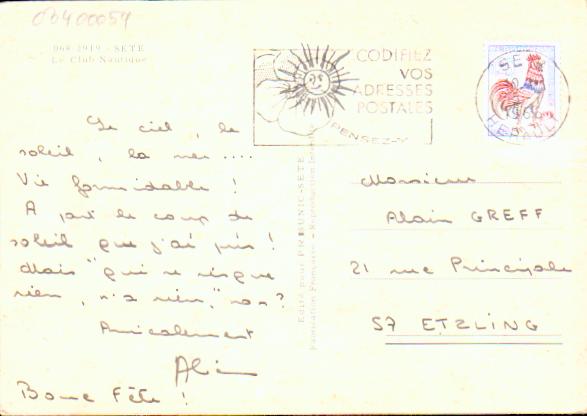 03400054
068-1919 - SETE
Le Club Nautique
CODIFIEZ
VOS
ADRESSES
POSTALES
PENSEZ-Y
SETE
HERAULT
Le ciel, le
soleil, la mer....
Vie formidable !
A part le coup de
soleil que j'ai pris !
Mais "qui ne risque
rien, n'a rien", non ?
Amicalement
Alain
Bonne Fête !
Edité pour PRISUNIC-SETE
Fabrication Française - Reproduction
Monsieur
Alain GREFF
21 rue Principale
57 ETZLING